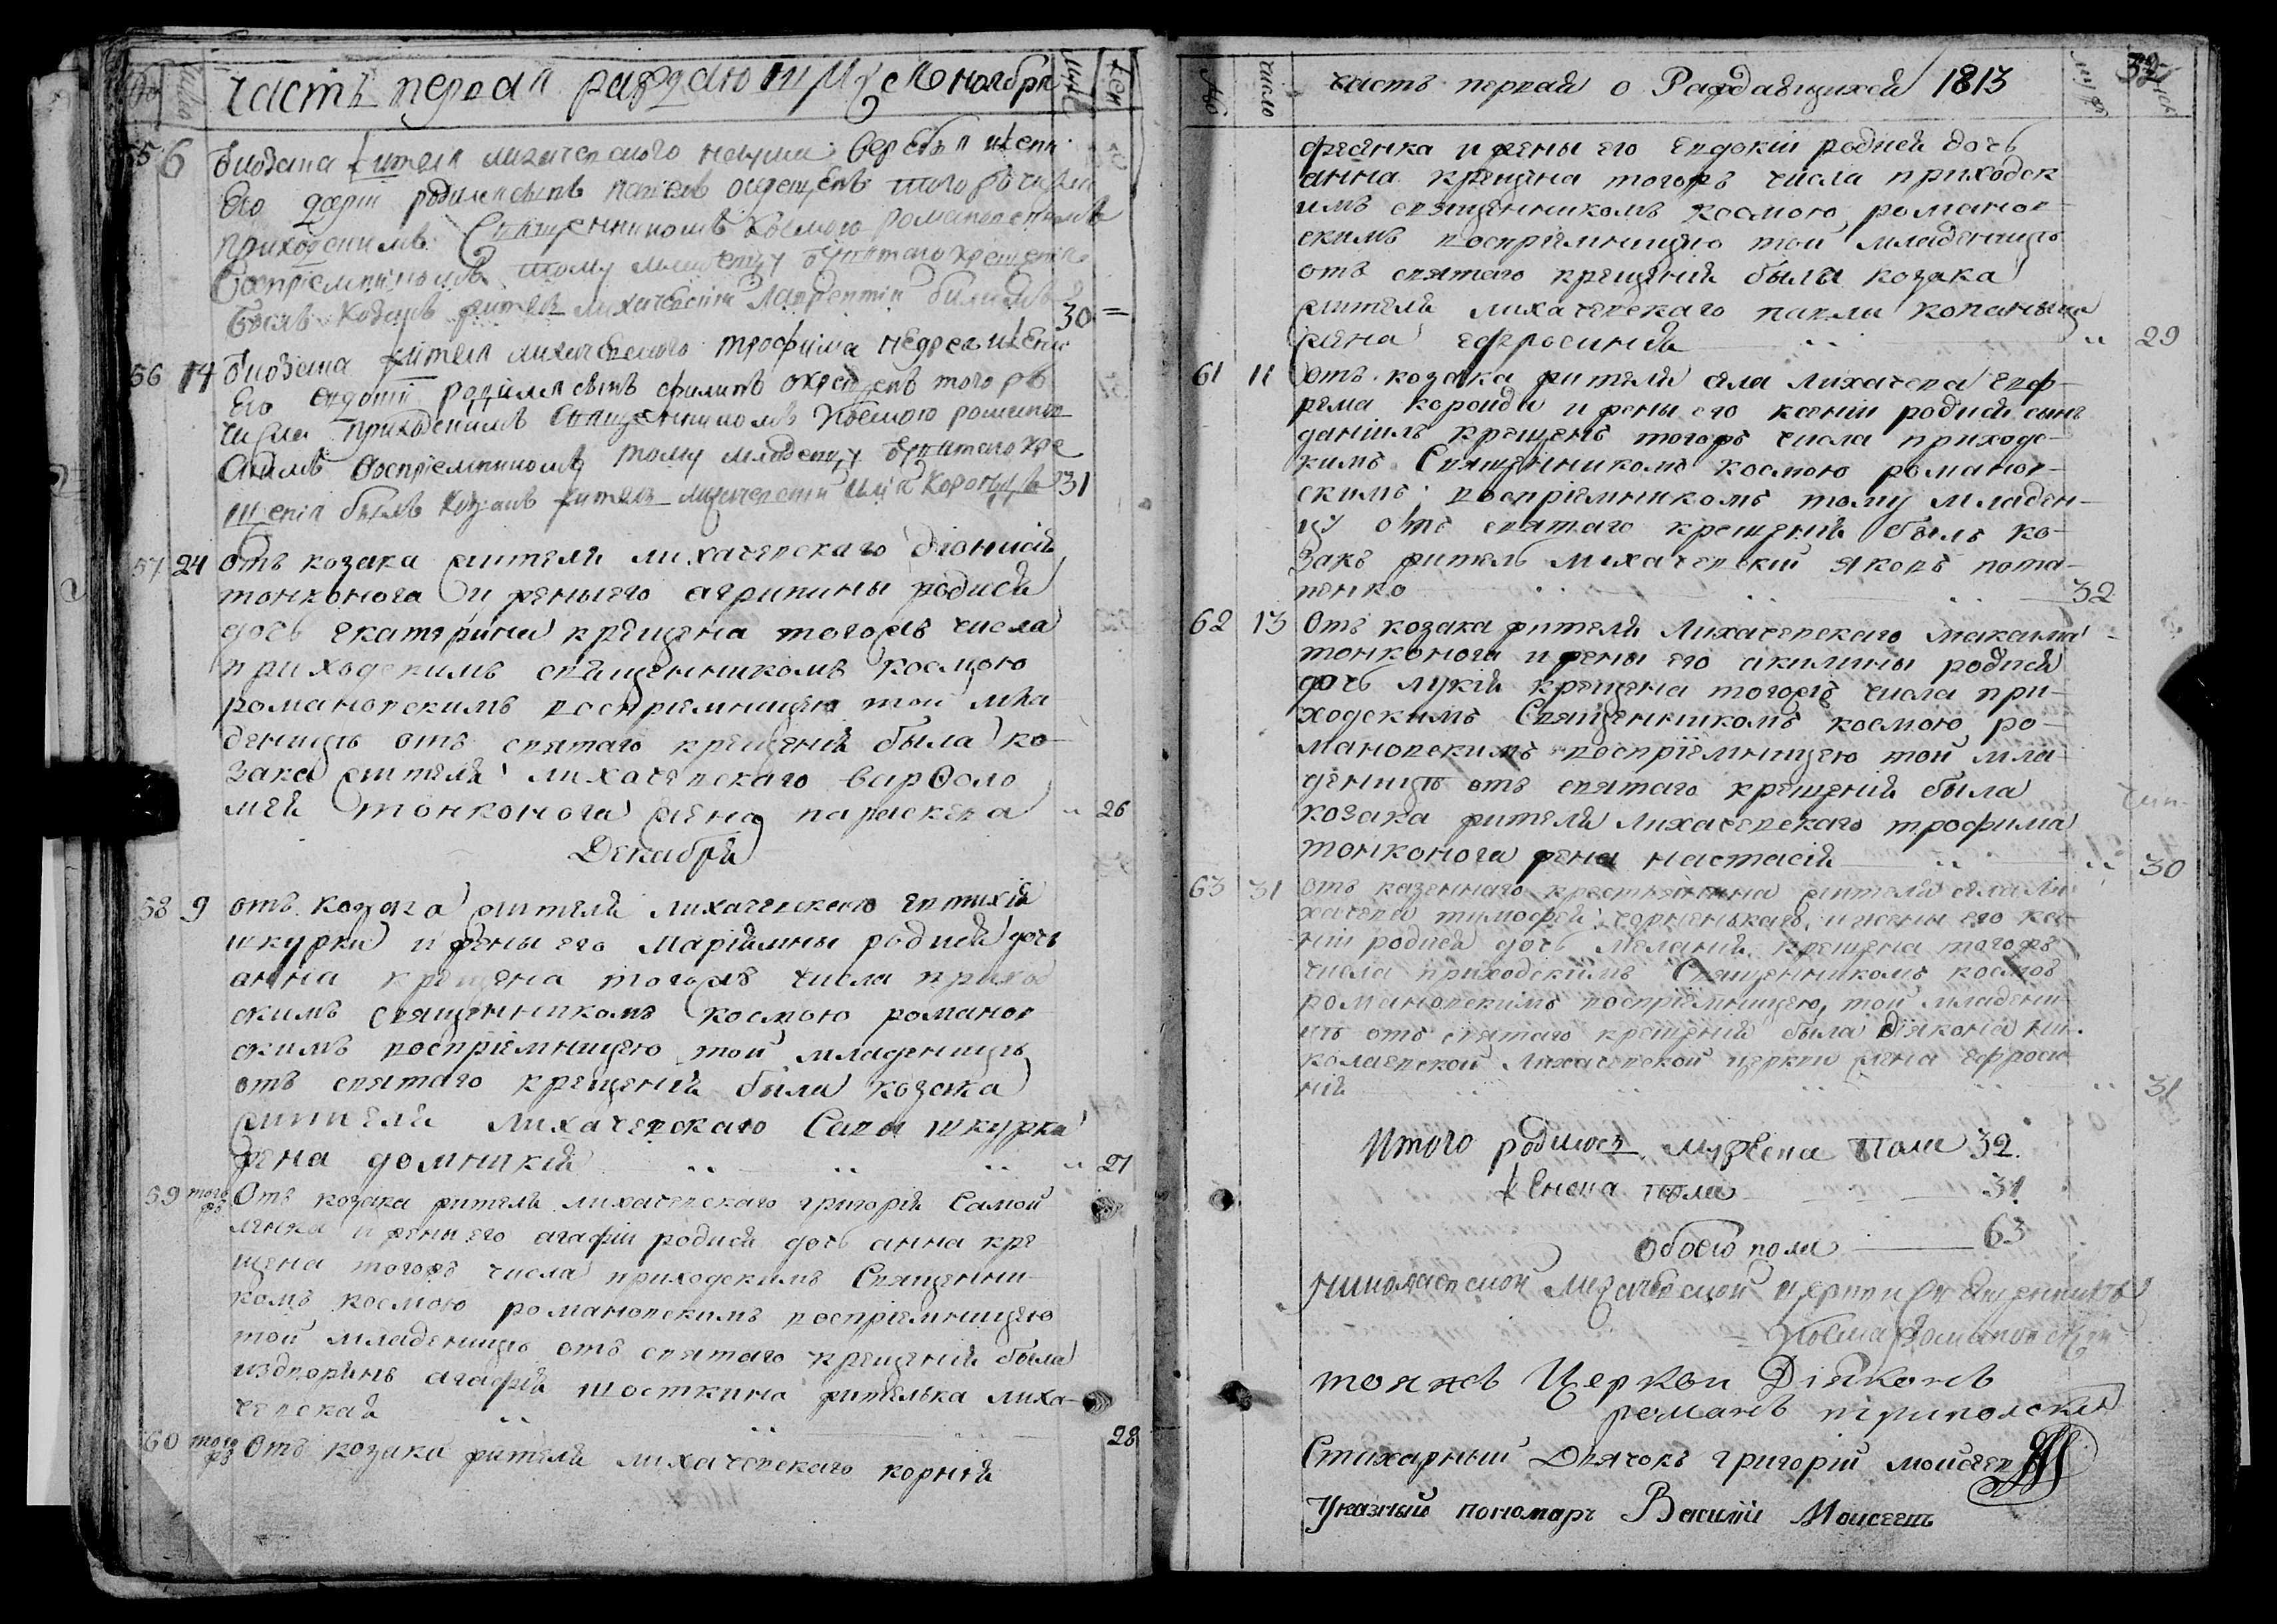 часть первая о
ноября
55 6
жителя лихачевского
его родился сынъ окрещенъ того жъ числа
приходскимъ Священникомъ Космою романовскимъ
Воспріемникомъ тому младенцу отъ святаго крещенія
былъ Козакъ житель лихачевскій Лаврентій 30
56 14 козака жителя лихачевского трофима жени
его евдокіи родился сынъ филипъ окрещенъ того жъ
числа приходскимъ Священникомъ Космою романов
скимъ Воспріемникомъ тому младенцу отъ святаго кре
щенія былъ Козакъ житель лихачевскій 31
57 24 отъ козака жителя лихачевскаго діонисія
тонконога и жены его агрипины родися
дочь екатерина крещена тогожъ числа
приходскимъ священникомъ космою
романовскимъ воспріемницею той мла
деницъ отъ святаго крещенія была ко-
зака жителя лихачевскаго варѳоло
мея тонконога жена параскева " 26
Декабря
58 9 отъ козака жителя лихачевскаго евтихія
шкурки и жены его маріямны родися дочь
анна крещена тогожъ числа приход
скимъ священникомъ космою романов
скимъ воспріемницею той младеницъ
отъ святаго крещенія была козака
жителя лихачевскаго Савы шкурки
жена домникія " 27
59 того жъ Отъ козака жителя лихачевскаго григорія Самой
ленка и жены его агафіи родися дочь анна кре
щена тогожъ числа приходскимъ Священни-
комъ космою романовскимъ воспріемницею
той младеницъ отъ святаго крещенія была
агафія шосткина жителька лиха-
чевская 28
60 того жъ Отъ козака жителя лихачевскаго корнія
№ число часть первая о Раждающихся 1813
и жены его евдокіи родися дочь
анна крещена тогожъ числа приходск
имъ священникомъ космою романов-
скимъ воспріемницею той младеницъ
отъ святаго крещенія была козака
жителя лихачевскаго павла
жена ефросинія " 29
61 11 отъ козака жителя села лихачева ефф-
рема и жены его ксеніи родися сынъ
даніилъ крещенъ тогожъ числа приходс-
кимъ Священникомъ космою романов-
скимъ воспріемникомъ тому младен-
цу отъ святаго крещенія былъ ко-
закъ житель лихачевскій яковъ пота-
пенко 32
62 13 Отъ козака жителя Лихачевскаго максима
тонконога и жены его акилины родися
дочь лукія крещена тогожъ числа при-
ходскимъ Священникомъ космою ро-
мановскимъ воспріемницею той мла-
деницъ отъ святаго крещенія была
козака жителя лихачевскаго трофима
тонконога жена настасія " 30
63 31 Отъ казеннаго крестьянина жителя села Ли-
хачева тимофея чорненькаго и жены его ксе-
ніи родися дочь меланія крещена тогожъ
числа приходскимъ Священникомъ космою
романовскимъ воспріемницею той младени-
цъ отъ святаго крещенія была діякона ни-
колаевской Лихачевской церкви жена ефроси-
нія " 31
Итого родилось мужеска пола 32.
Женска пола 31
обоего пола 63
николаевской лихачевской церкви Священникъ
Косма Романовскій
тояжъ Церкви Діяконъ
романъ
Стихарный Дячокъ григорій моисеевъ
Указный пономарь Василій Моисеевъ